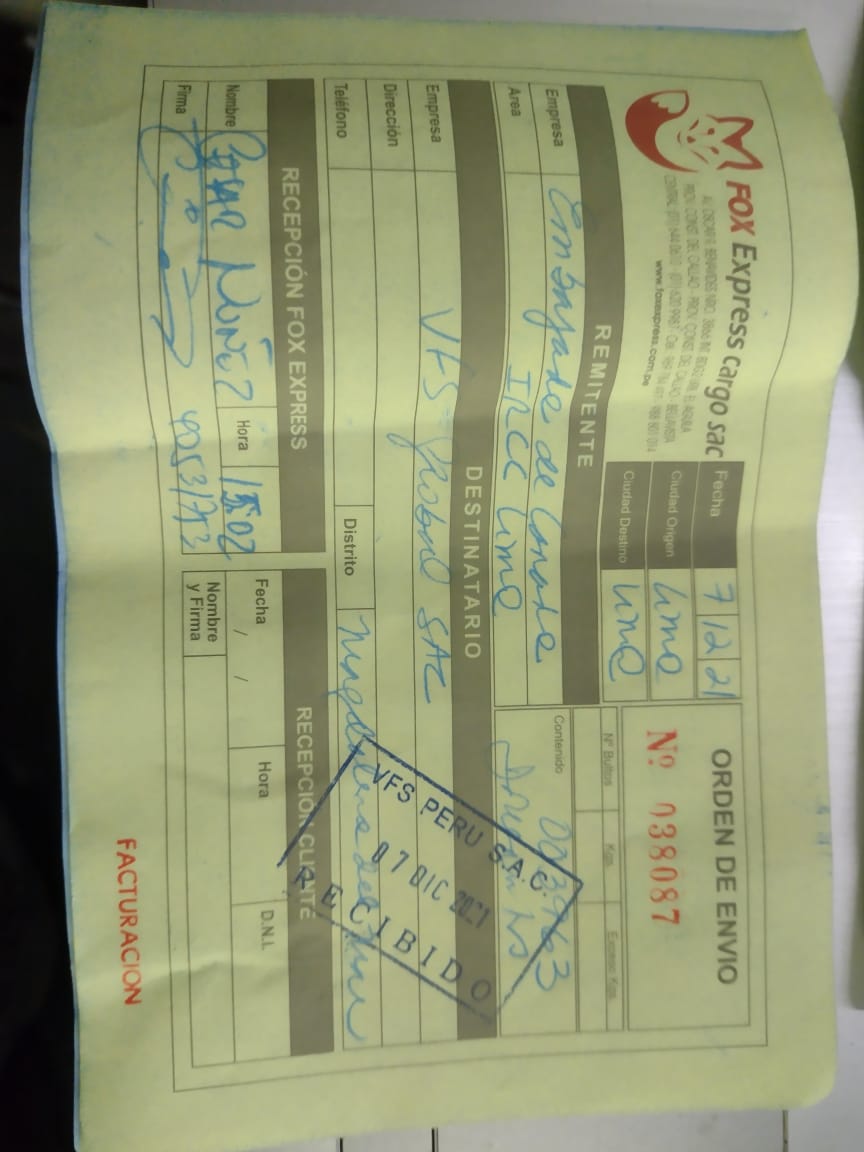 FOX Express cargo sac
www.foxexpress.com.pe
Fecha 7 12 21
Ciudad Origen Lima
Ciudad Destino Lima
ORDEN DE ENVIO
Nº 038087
REMITENTE
Empresa Embajada de Canada
Area IRCC Lima
Nº Bultos Kgs. Exceso Kgs.
Contenido
DESTINATARIO
Empresa VFS Global SAC
Dirección
Teléfono
Distrito Magdalena del Mar
VFS PERU S.A.C.
07 DIC 2021
RECIBIDO
RECEPCIÓN FOX EXPRESS
Nombre Cesar Nuñez
Hora 15:02
Firma
RECEPCIÓN CLIENTE
Fecha / /
Hora
D.N.I.
Nombre
y Firma
FACTURACION